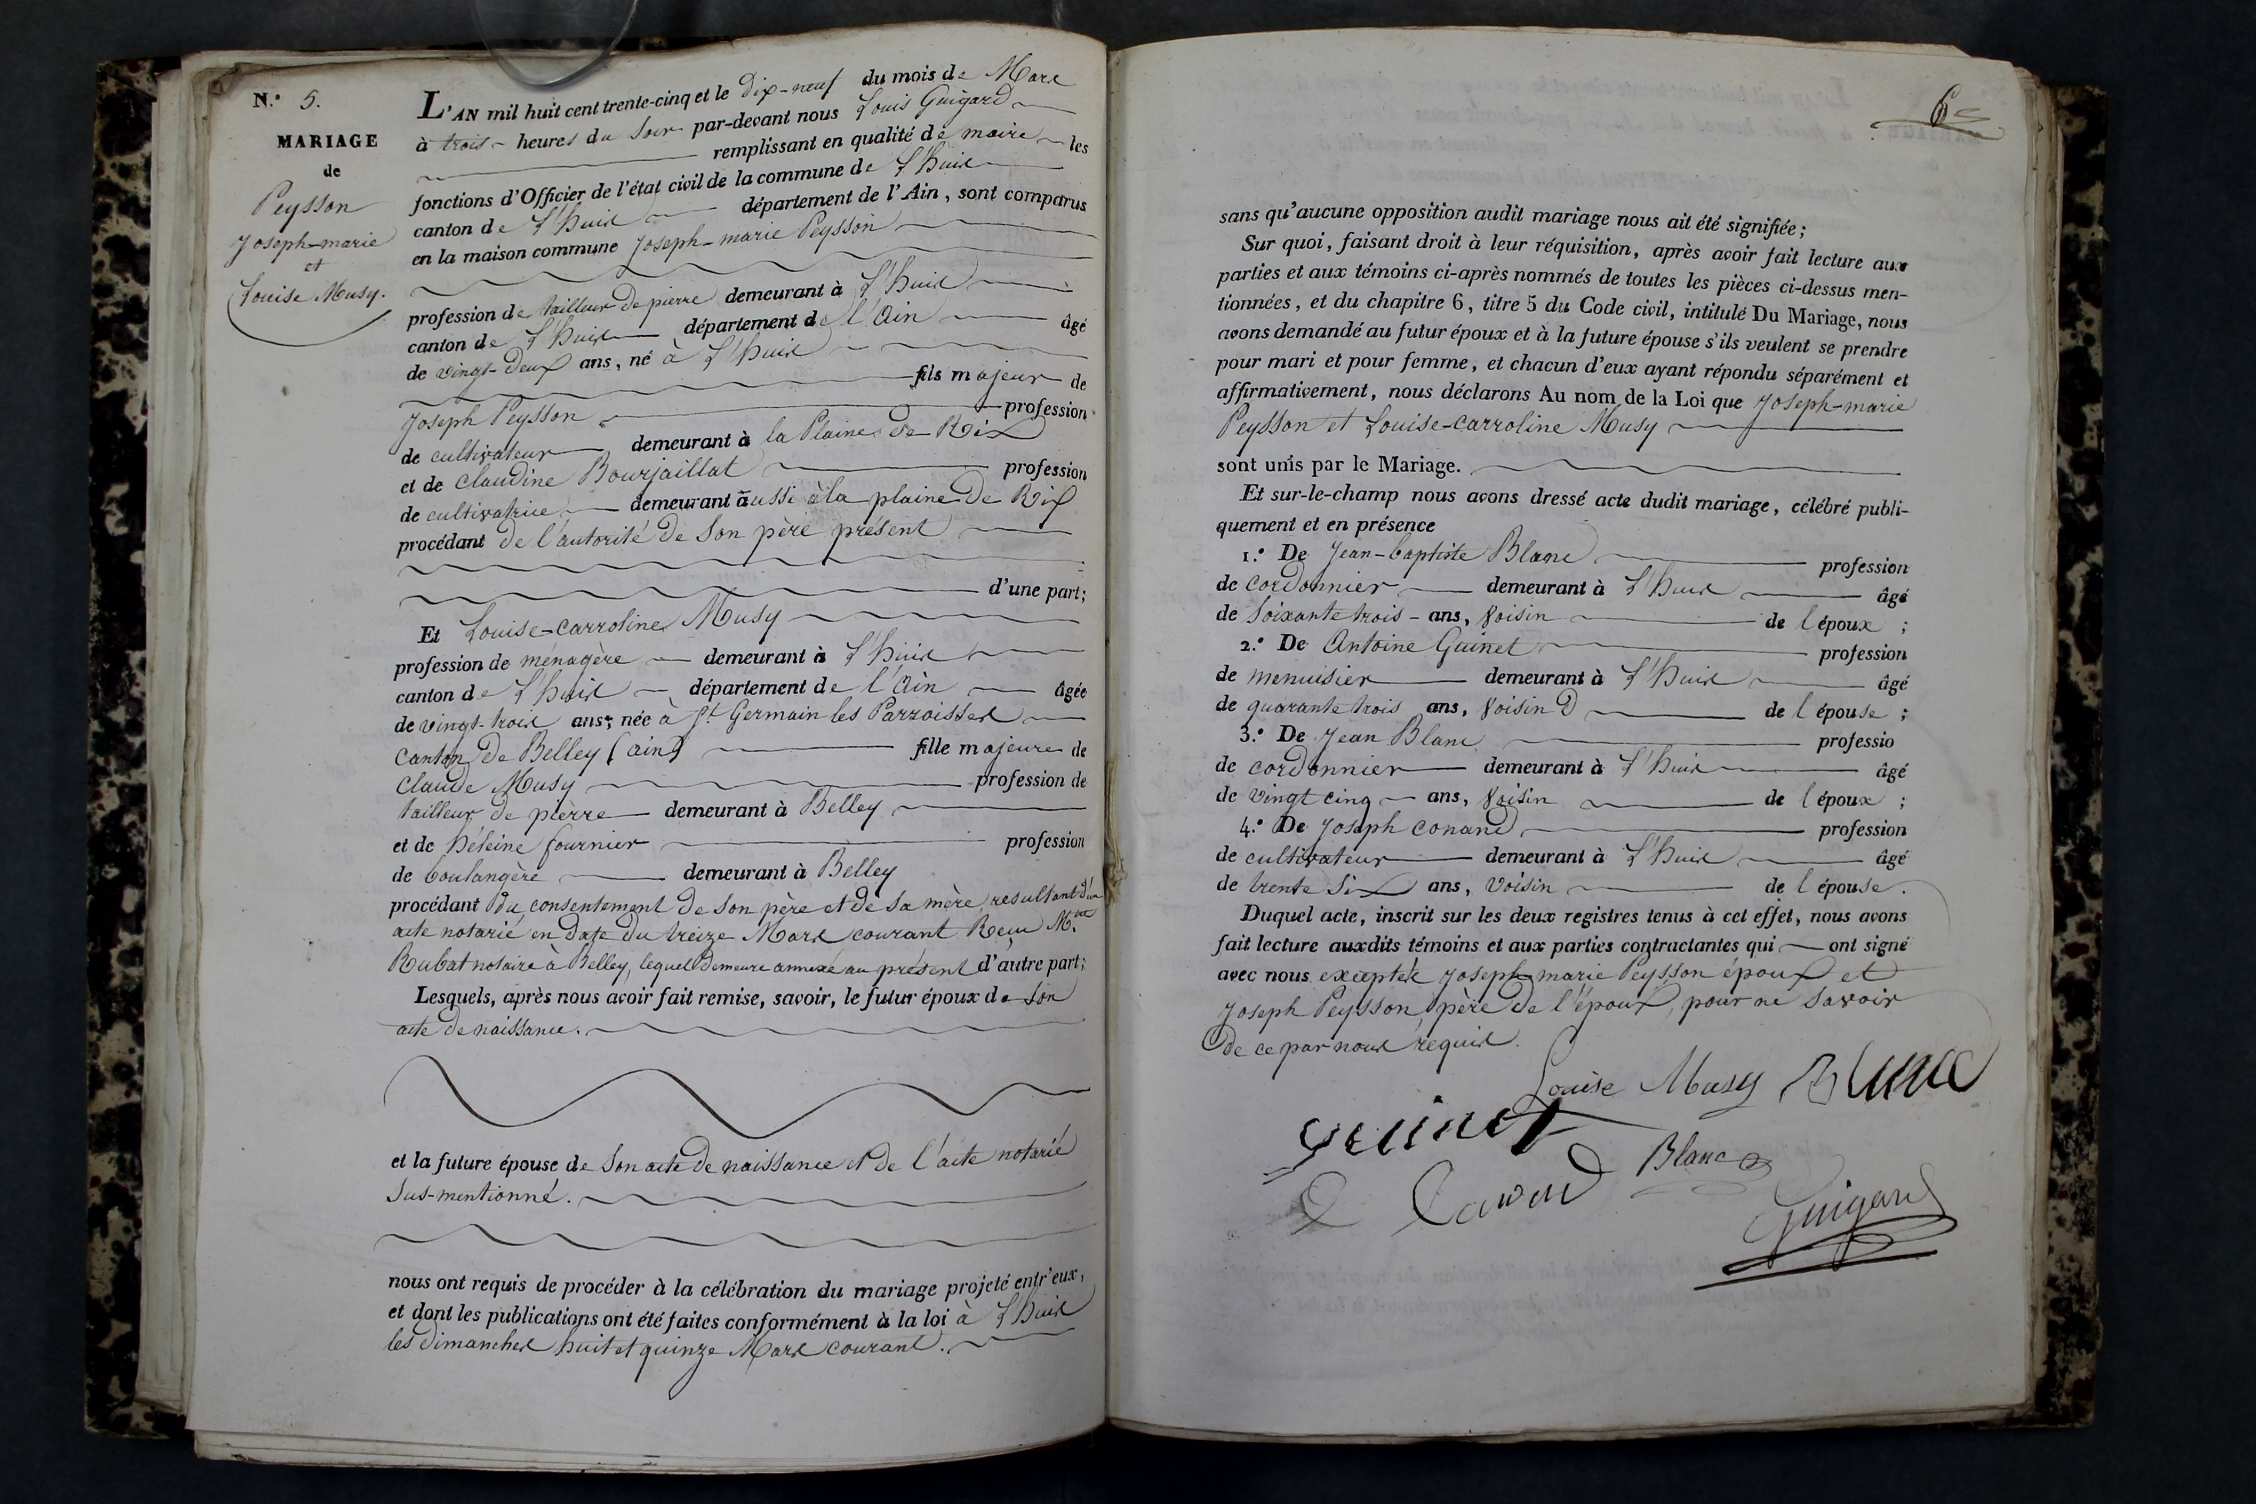 N.° 5.
MARIAGE
de
Peysson
Joseph-marie
et
Louise Musy.
L'AN mil huit cent trente-cinq et le dix-neuf du mois de Mars
à trois heures du Soir par-devant nous Louis Guigard
remplissant en qualité de maire les
fonctions d'Officier de l'état civil de la commune de L'huis
canton de L'huis département de l'Ain, sont comparus
en la maison commune Joseph-marie Peysson
profession de tailleur de pierre demeurant à L'huis
canton de L'huis département de l'Ain âgé
de vingt-deux ans, né à L'huis
fils majeur de
Joseph Peysson profession
de cultivateur demeurant à la Plaine de Rix
et de Claudine Bourjaillat profession
de cultivatrice demeurant aussi à la plaine de Rix
procédant de l'autorité de Son père présent
d'une part;
Et Louise-Carroline Musy
profession de ménagère demeurant à L'huis
canton de L'huis département de l'Ain âgée
de vingt-trois ans, née à St. Germain les Parroisses
Canton de Belley (ain) fille majeure de
Claude Musy profession de
tailleur de pièrre demeurant à Belley
et de héleine fournier profession
de boulangère demeurant à Belley
procédant du consentement de Son père et de Sa mère, resultant d'un
acte notarié en date du treize Mars courant Recu Me.
Rubat notaire à Belley, lequel demeure annexé au présent d'autre part;
Lesquels, après nous avoir fait remise, savoir, le futur époux de Son
acte de naissance.
et la future épouse de Son acte de naissance et de l'acte notarié
Sus-mentionné.
nous ont requis de procéder à la célébration du mariage projeté entr'eux,
et dont les publications ont été faites conformément à la loi à L'huis
les dimanches huit et quinze Mars courant.
6
sans qu'aucune opposition audit mariage nous ait été signifiée;
Sur quoi, faisant droit à leur réquisition, après avoir fait lecture aux
parties et aux témoins ci-après nommés de toutes les pièces ci-dessus men-
tionnées, et du chapitre 6, titre 5 du Code civil, intitulé Du Mariage, nous
avons demandé au futur époux et à la future épouse s'ils veulent se prendre
pour mari et pour femme, et chacun d'eux ayant répondu séparément et
affirmativement, nous déclarons Au nom de la Loi que Joseph-marie
Peysson et Louise-Carroline Musy
sont unis par le Mariage.
Et sur-le-champ nous avons dressé acte dudit mariage, célébré publi-
quement et en présence
1.° De Jean-baptiste Blanc profession
de cordonnier demeurant à L'huis âgé
de Soixante trois ans, Voisin de l'époux;
2.° De Antoine Guinet profession
de menuisier demeurant à L'huis âgé
de quarante trois ans, Voisin D de l'épouse;
3.° De Jean Blanc professio
de cordonnier demeurant à L'huis âgé
de vingt cinq ans, Voisin de l'époux;
4.° De Joseph Conand profession
de cultivateur demeurant à L'huis âgé
de trente Six ans, Voisin de l'épouse.
Duquel acte, inscrit sur les deux registres tenus à cet effet, nous avons
fait lecture auxdits témoins et aux parties contractantes qui ont signé
avec nous exceptés Joseph-marie Peysson époux et
Joseph Peysson père de l'époux, pour ne Savoir
De ce par nous requis.
Louise Musy Blanc
Guinet
Blanc
Conand
Guigard